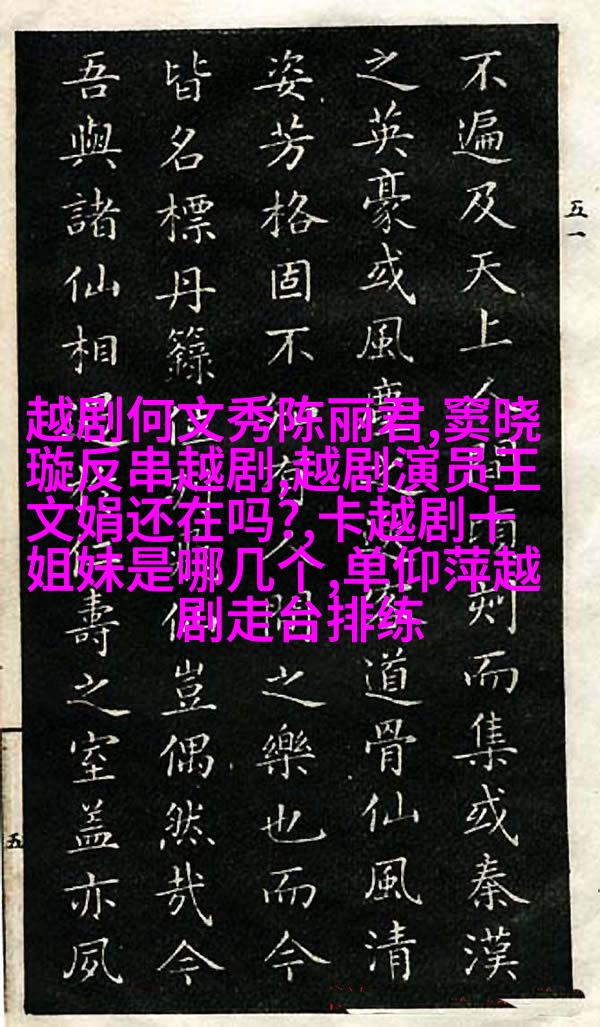 越剧何文秀陈丽君,窦晓
璇反串越剧,越剧演员王
文娟还在吗?,卡越剧十
姐妹是哪几个,单仰萍越
剧走台排练
不遍及天上人間刻而集或秦漢
之英豪或風塵道骨仙風清
姿芳格固不有人之樂也而今
皆名標丹籙位豈偶然哉今
吾與諸仙相壽之室蓋亦夙
五一
五